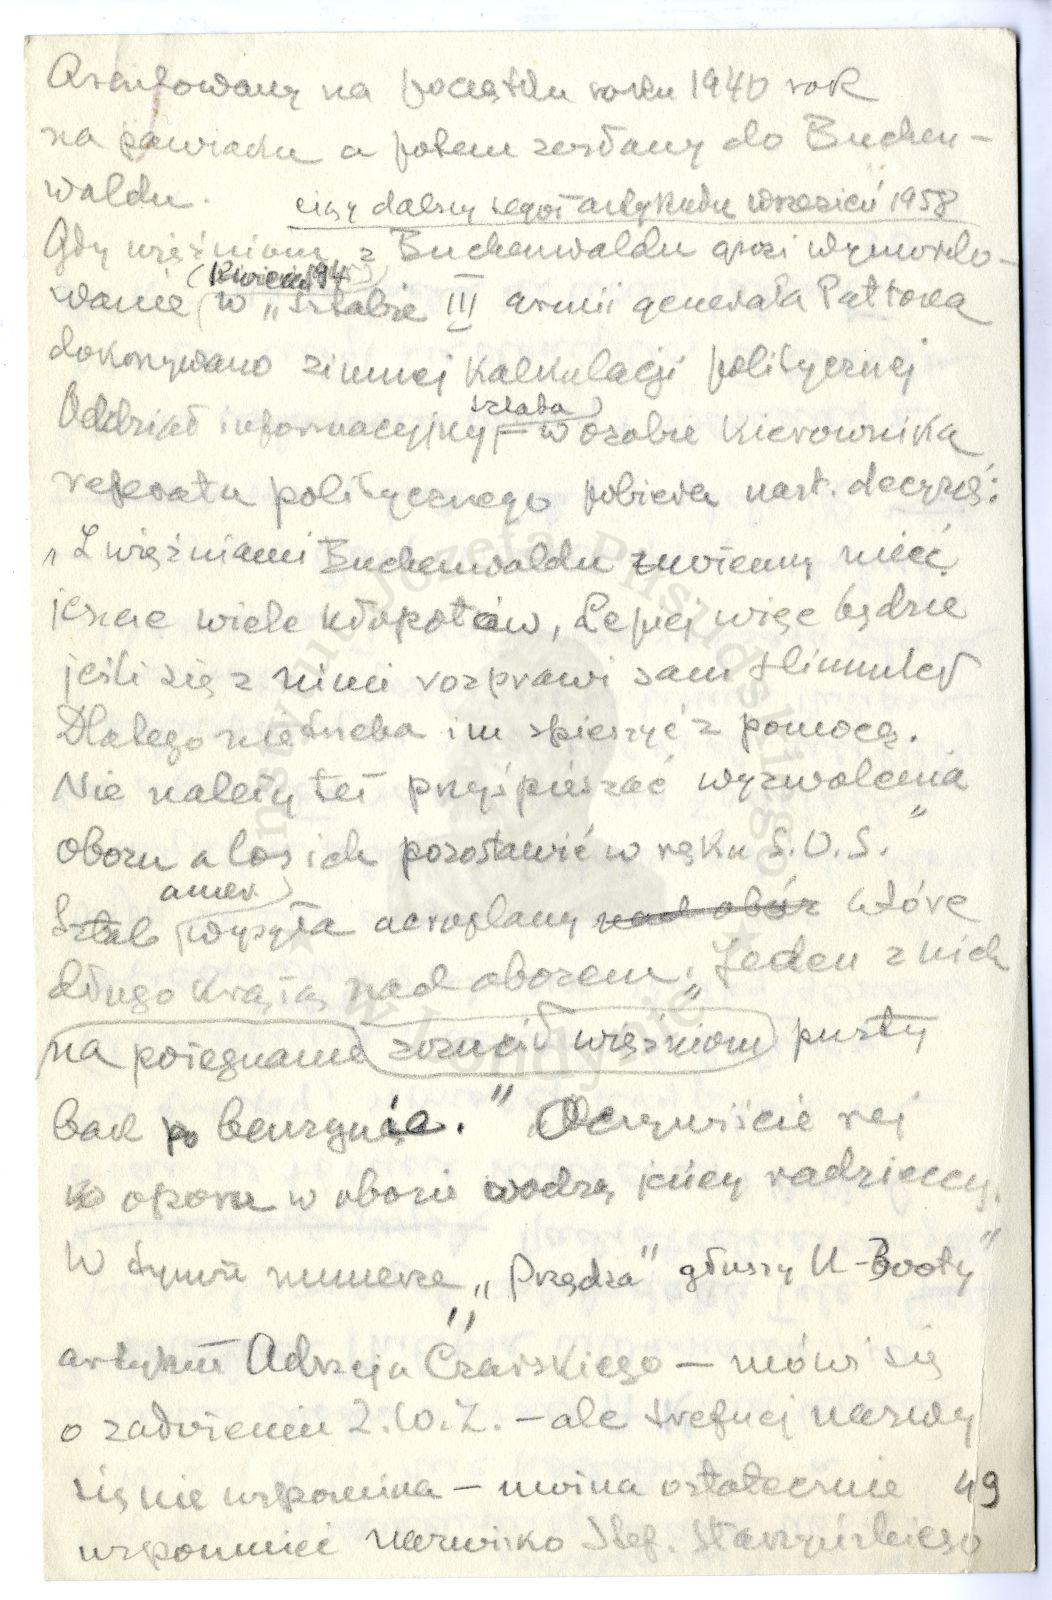 Aresztowany na początku roku 1940 rok
na pawiaku a potem zesłany do Buchen-
waldu.
ciąg dalszy tegoż artykułu wrzesień 1958
Gdy więźniom z Buchenwaldu grozi wymordo-
wanie (kwiecień 194 ) w „sztabie III armii generała Pattona
dokonywano zimnej kalkulacji politycznej
Oddział informacyjny sztabu – w osobie kierownika
referatu politycznego pobiera nast. decyzję:
„Z więźniami Buchenwaldu możemy mieć
jeszcze wiele kłopotów, Lepiej więc będzie
jeśli się z nimi rozprawi sam Himmler
Dlatego nie trzeba im spieszyć z pomocą.
Nie należy też przyśpieszać wyzwolenia
obozu a los ich pozostawić w ręku S.O.S."
Sztab amer wysyła aeroplany nad obóz które
długo krążą nad obozem „Jeden z nich
na pożegnanie zrzucił więźniom pusty
bak po benzynie." Oczywiście rej
w oporu w obozie wodzą jeńcy radzieccy.
W tymże numerze „Prządza" głuszy U-Booty"
artykuł Adrzeja Czarskiego – mówi się
o Z.W.Z. – ale trefnej nazwy
się nie wspomina – można ostatecznie 49
wspomnieć nazwisko Stef. Starzyńskiego
Instytut Józefa Piłsudskiego
w Londynie